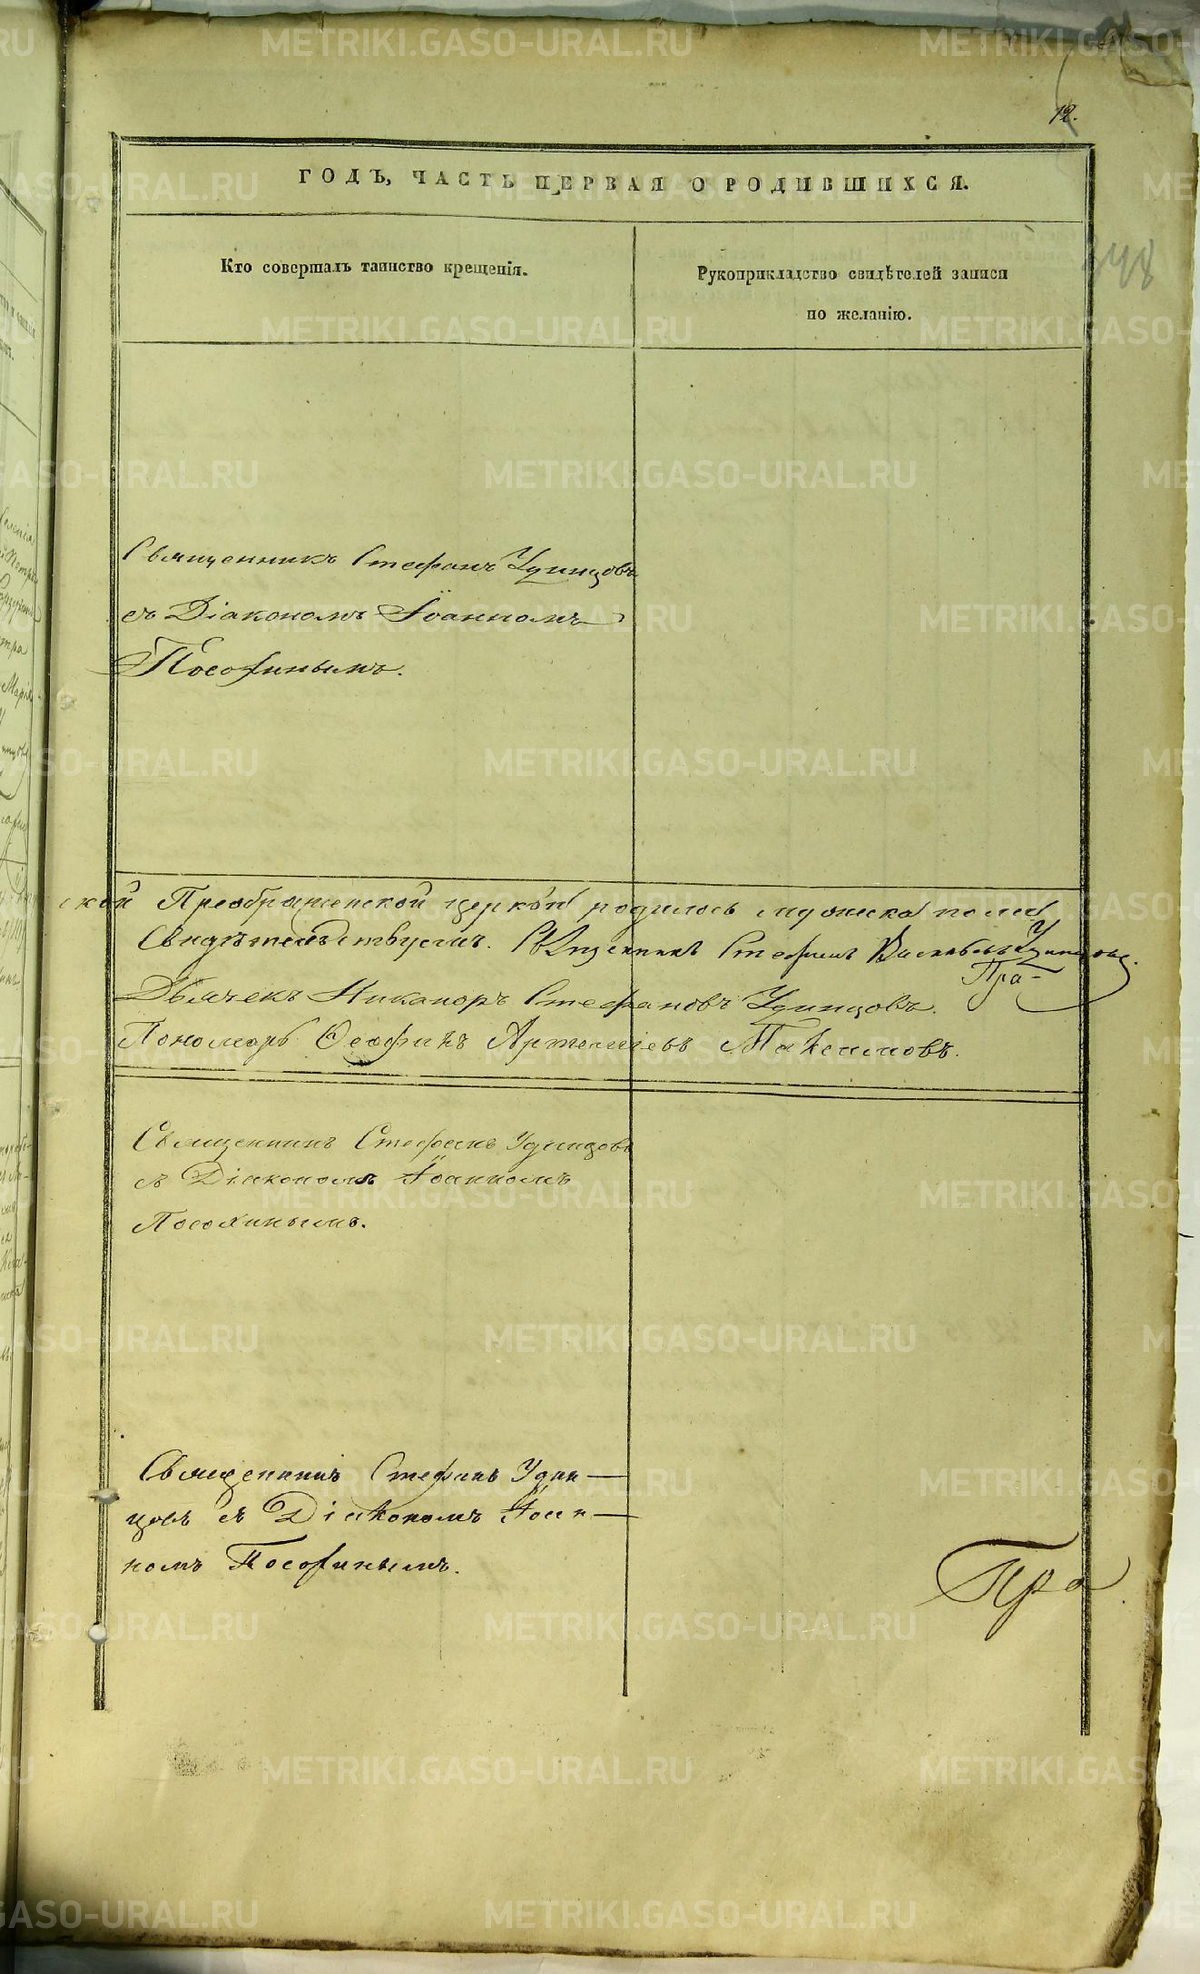 12.
ГОДЪ, ЧАСТЬ ПЕРВАЯ О РОДИВШИХСЯ.
Кто совершалъ таинство крещенія.
Рукоприкладство свидѣтелей записи
по желанію.
348
Священникъ Стефанъ Удинцовъ
съ Діакономъ Іоанномъ
Пософинымъ.
ской Преображенской церкви родилось мужеска пола
Свидѣтельствуемъ. Священникъ Стефанъ Васильевъ Удинцовъ.
Пра-
Дьячекъ Никаноръ Стефановъ Удинцовъ.
Пономарь Ѳеофилъ Артемьевъ Максимовъ.
Священникъ Стефанъ Удинцовъ
съ Діакономъ Іоанномъ
Пософинымъ.
Священникъ Стефанъ Удин-
цовъ съ Діакономъ Іоан-
номъ Пософинымъ.
Пра
METRIKI.GASO-URAL.RU